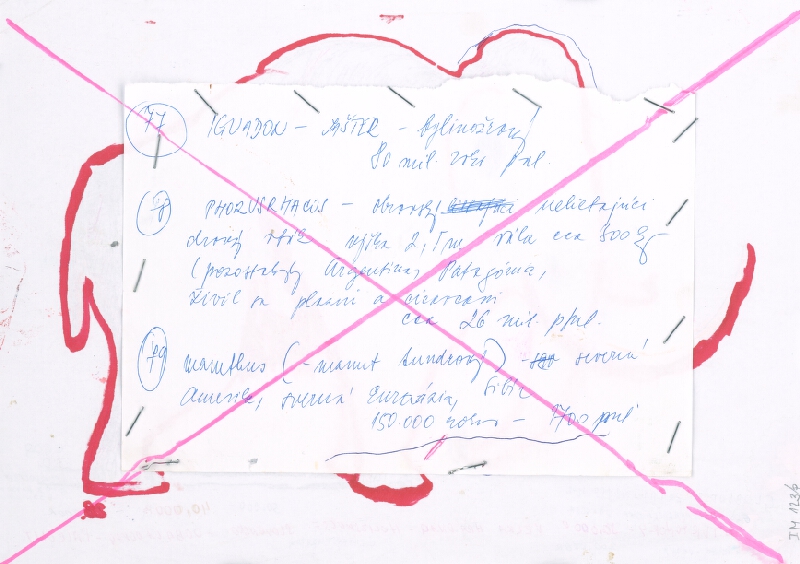 77 IGUADON – JAŠTER – bylinožravý
80 mil. rokí pnl.
78 PHORUSRHACUS – obrovský nelietajúci
dravý vták výška 2,5m váha cca 300 kg
(pozostatky Argentína, Patagónia,
živil sa plazmi a cicavcami
cca 26 mil. pnl.
79 mamuthus (– mamut tundrový) – severná
Amerika, severná Eurázia, Sibír
150.000 rokov – 1700 pnl
JM 1236